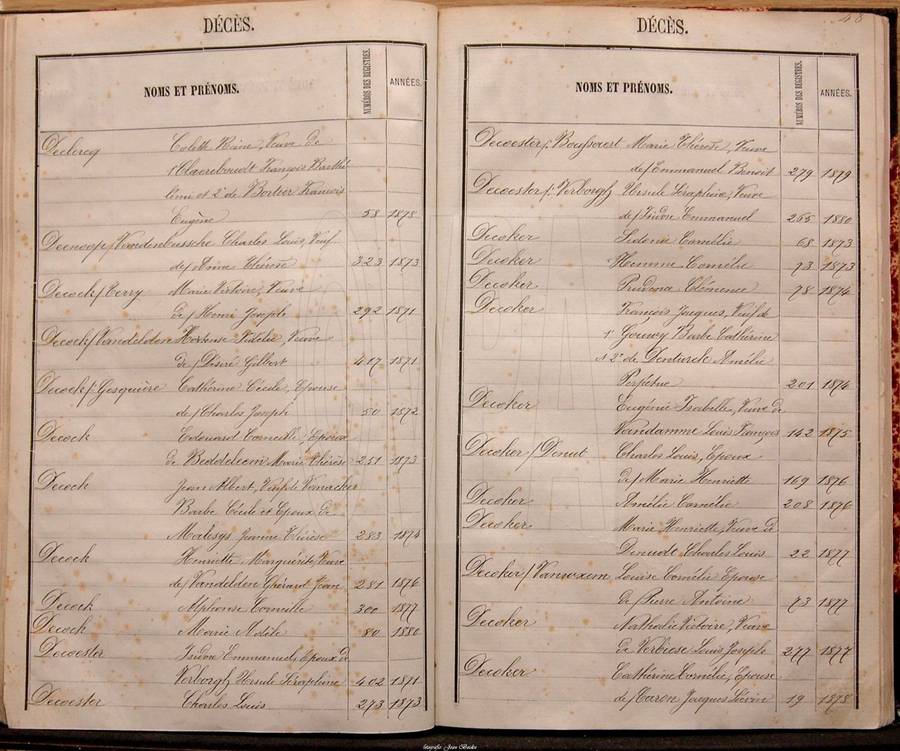 DÉCÈS.
NOMS ET PRÉNOMS.
NUMÉROS DES REGISTRES.
ANNÉES.
Declercq Colette Reine, Veuve de
1° Claereboudt François Barthé
lémi et 2° de Bortier François
Eugène 58 1878
/Vandenbussche Charles Louis, Veuf
de/ Anna Thérèse 323 1873
Decock/Terry Marie Victoire, Veuve
de/ Henri Joseph 292 1871
Decock/Vandelden Hortense Fidélie Veuve
de/ Désiré Gilbert 407 1871
Decock/Gesquière Catherine Cécile, Epouse
de/ Charles Joseph 50 1872
Decock Edouard Corneille, Epoux
de Beddeleem Marie Thérèse 251 1873
Decock Jean Albert, Veuf de
Barbe Cécile et Epoux de
Malesys Jeanne Thérèse 283 1874
Decock Henriette Marguérite Veuve
de/ Vandelden Gherard Jean 281 1876
Decock Alphonse Corneille 300 1877
Decock Marie 80 1880
Decoester Isidore Emmanuel, Epoux de
Verborgh Ursule Séraphine 402 1871
Decoester Charles Louis 273 1873
48
DÉCÈS.
NOMS ET PRÉNOMS.
NUMÉROS DES REGISTRES.
ANNÉES.
Decoester/Bouysaert Marie Thérèse, Veuve
de/ Emmanuel Benoit 279 1879
Decoester/Verborgh Ursule Séraphine, Veuve
de/ Isidore Emmanuel 265 1880
Decoker Sidonie Cornélie 68 1873
Decoker Cornélie 93 1873
Decoker Clémence 78 1874
Decoker François Jacques, Veuf de
1° Gouwy Barbe Catherine
& 2° de Amélie
Perpétue 201 1874
Decoker Eugénie Isabelle, Veuve de
Vandamme Louis François 142 1875
Decoker/Donut Charles Louis, Epoux
de/ Marie Henriette 169 1876
Decoker Amélie Cornélie 208 1876
Decoker Marie Henriette, Veuve de
Charles Louis 22 1877
Decoker/Vanwxem Louise Cornélie Epouse
de/ Pierre Antoine 73 1877
Decoker Nathalie Victoire, Veuve
de Verbiese Louis Joseph 277 1877
Decoker Catherine Cornélie, Epouse
de/ Caron Jacques Liévin 19 1878
fotografie Jean Backx